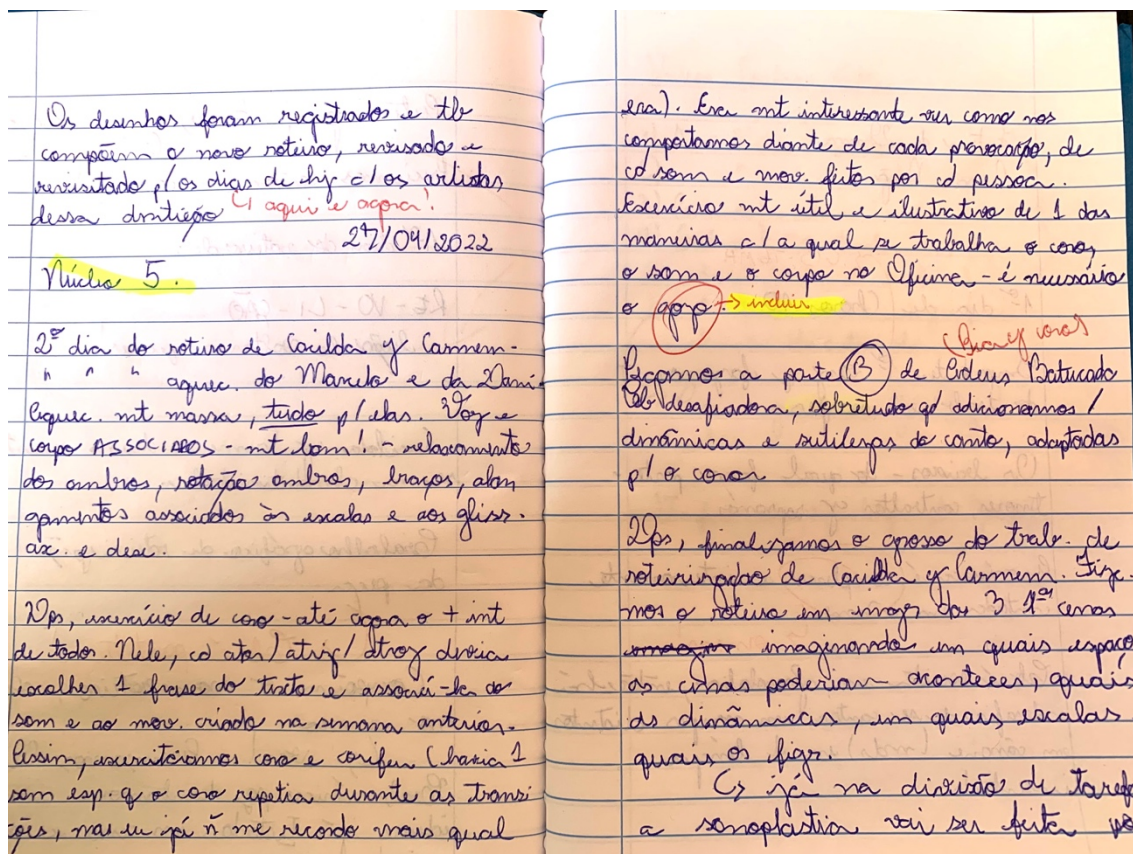 Os desenhos foram registrados e tb
compõem o novo roteiro, revisado e
revisitado p/ os dias de hj c/ os artistas
dessa dentição ↳ aqui e agora!
27/04/2022
Núcleo 5.
2º dia do roteiro de Cacilda y Carmem.
" " " aquec. do Marcelo e da Dani.
Aquec. mt massa, tudo p/ elas. Voz e
corpo ASSOCIADOS - mt bom! - relaxamento
dos ombros, rotação ombros, braços, alon
gamentos associados às escalas e aos gliss.
asc. e desc.
Dps, exercício de coro - até agora o + int
de todos. Nele, cd ator/atriz/atroz deveria
escolher 1 frase do texto e associá-la ao
som e ao mov. criado na semana anterior.
Assim, exercitávamos coro e corifeu (havia 1
som esp. q o coro repetia durante as transi
ções, mas eu já ñ me recordo mais qual
era). Era mt interessante ver como nos
comportamos diante de cada provocação, de
cd som e mov. feitos por cd pessoa.
Exercício mt útil e ilustrativo de 1 das
maneiras c/ a qual se trabalha o coro,
o som e o corpo no Oficina - é necessário
o gozo → incluir
(Bia y coro)
a parte B de Adeus Batucada
Tb desafiadora, sobretudo qd adicionamos
dinâmicas e sutilezas do canto, adaptadas
p/ o coro.
Dps, finalizamos o grosso do trab. de
roteirização de Cacilda y Carmem. Fize-
mos o roteiro em imags das 3 1ªs cenas
imaginando em quais espaço
as cenas poderiam acontecer, quais
as dinâmicas, em quais escalas
quais os figs.
↳ já na divisão de taref
a sonoplastia vai ser feita po